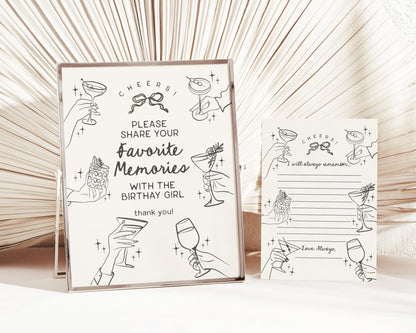 CHEERS!
PLEASE
SHARE YOUR
Favorite
Memories
WITH THE
BIRTHAY GIRL
thank you!
CHEERS!
I will always remember...
Love Always,